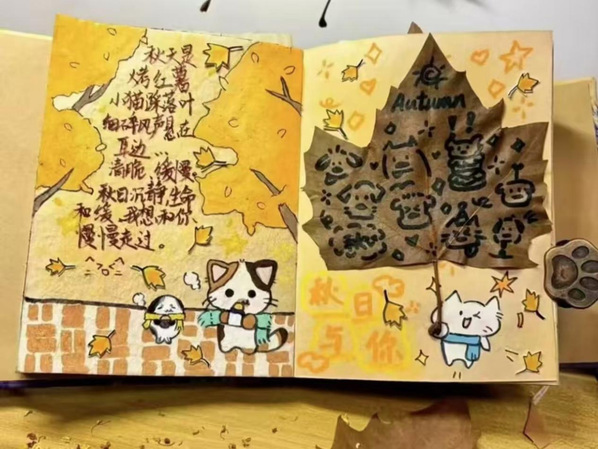 秋天是
烤红薯
小猫踩落叶
细碎风声总在
耳边...
清脆、缓慢、
秋日沉静,生命
和缓,我想和你
慢慢走过。
Autumn
秋日
与你